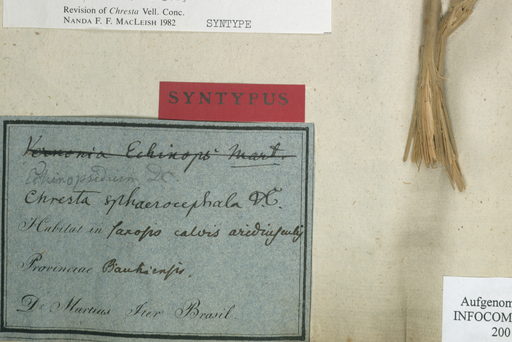 Revision of Chresta Vell. Conc.
NANDA F. F. MACLEISH 1982 SYNTYPE
SYNTYPUS
Vernonia Echinops Mart.
DC.
Chresta sphaerocephala DC.
Habitat in saxosis calvis
Provinciae
De Martius Iter Brasil.
Aufgenom
INFOCOM
200